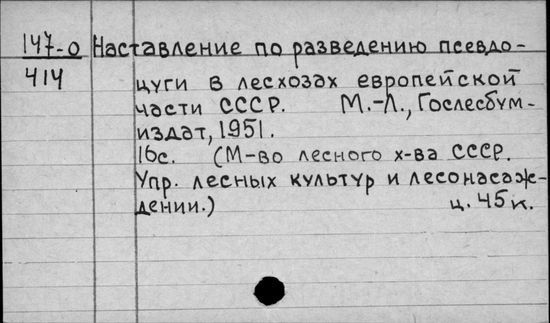 147-о Наставление по разведению псевдо-
414 цуги в лесхозах европейской
части СССР. М.-Л., Гослесбум-
издат, 1951.
16с. (М-во лесного х-ва СССР.
Упр. лесных культур и лесонасаж-
дении.) ц. 45 к.